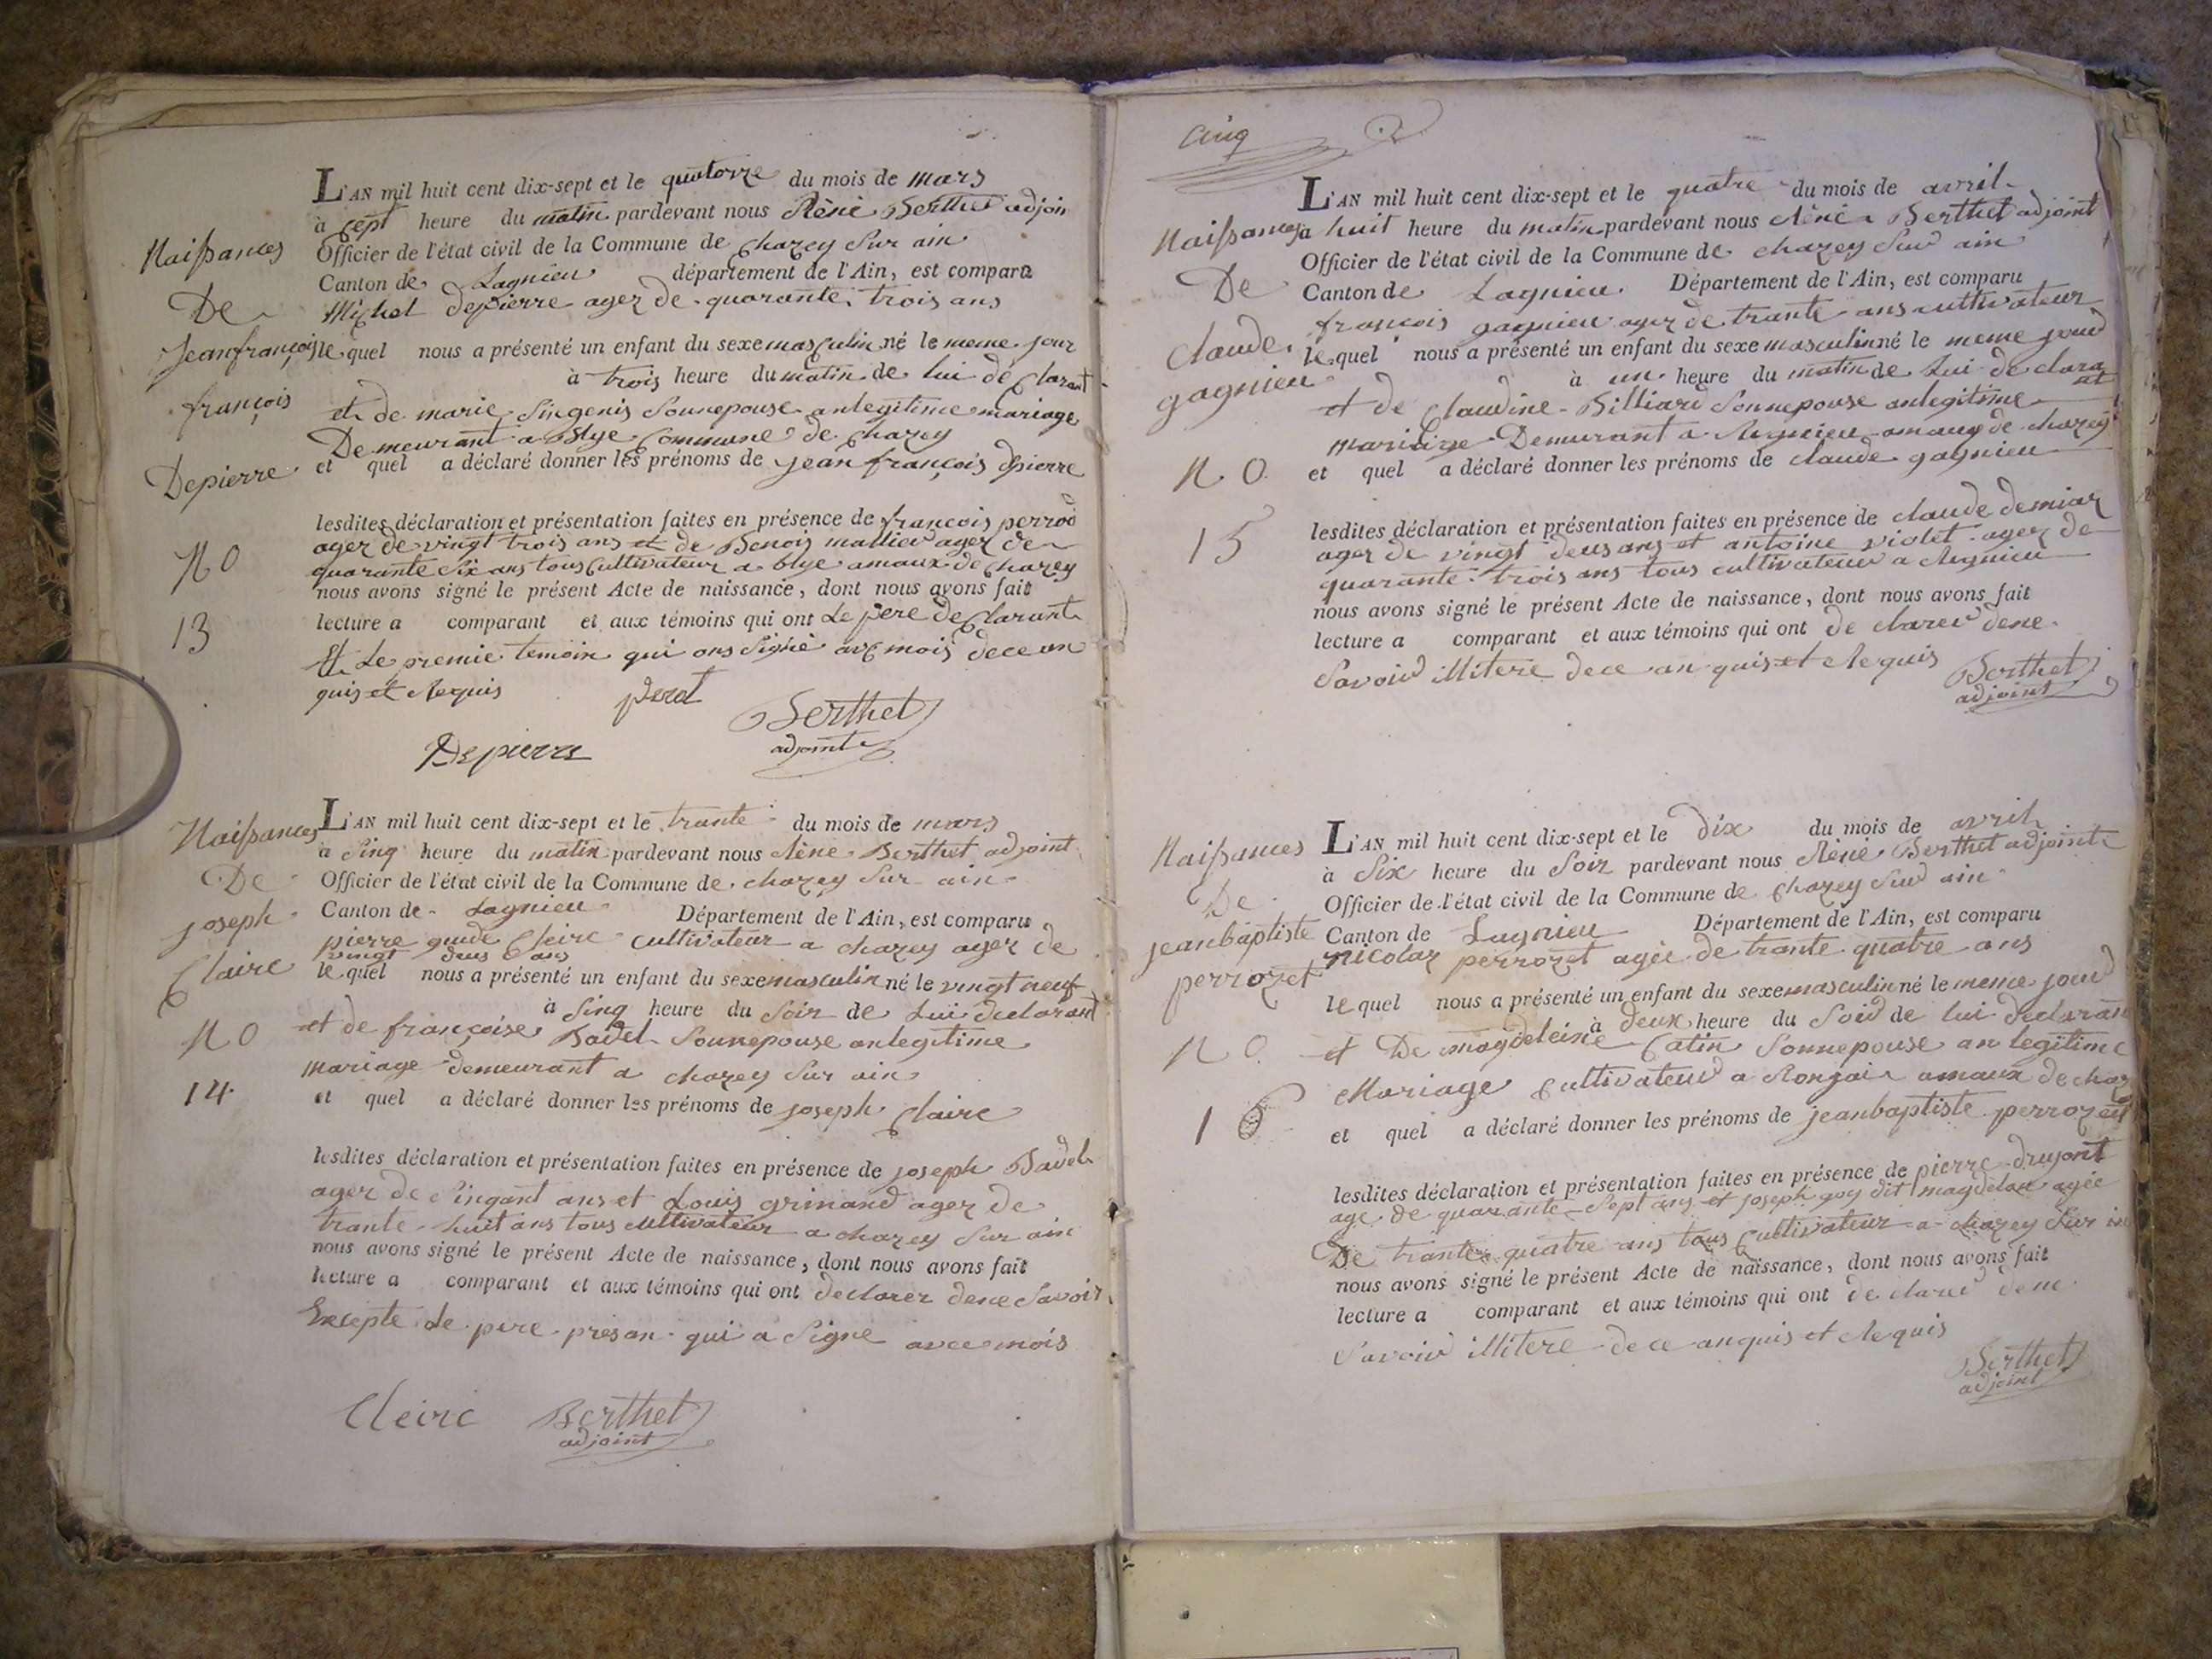 Naissances
De
Jeanfrançois
françois
Depierre
No
13
L'AN mil huit cent dix-sept et le quatorze du mois de mars
à sept heure du matin pardevant nous Réné Berthet adjoin
Officier de l'état civil de la Commune de Chazey Sur ain
Canton de Lagnieu département de l'Ain, est comparu
Michel depierre agez de quarante trois ans
lequel nous a présenté un enfant du sexe masculin né le meme jour
à trois heure du matin de lui déclarant
et de marie Singenis Sonnepouse anlegitime mariage
Demeurant a Blye Commune de Chazey
et quel a déclaré donner les prénoms de jean françois dpierre
lesdites déclaration et présentation faites en présence de françois perrod
agez de vingt trois ans et de Benois mallieu agez de
quarante Six ans tous Cultivateur a blye amaux de Chazey
nous avons signé le présent Acte de naissance, dont nous avons fait
lecture a comparant et aux témoins qui ont Le pere declarant
Et Le premie temoin qui ons Signé avec mois dece an
quis et Requis perot Berthet
adjoint
Depierre
Naissances
De
joseph
Claire
No
14
L'AN mil huit cent dix-sept et le trante du mois de mars
à Sinq heure du matin pardevant nous Réne Berthet adjoint
Officier de l'état civil de la Commune de chazey Sur ain
Canton de Lagnieu Département de l'Ain, est comparu
pierre Cleire cultivateur a chazey agez de
vingt deus ans
le quel nous a présenté un enfant du sexe masculin né le vingt neuf
à Sinq heure du Soir de Lui declarant
et de françoise Badel Sonnepouse anlegitime
mariage demeurant a chazey Sur ain
et quel a déclaré donner les prénoms de joseph Claire
lesdites déclaration et présentation faites en présence de joseph Badel
agez de Sinqant ans et Louis grinand agez de
trante huit ans tous cultivateur a chazey Sur ain
nous avons signé le présent Acte de naissance, dont nous avons fait
lecture a comparant et aux témoins qui ont declarez dene Savoir
Excepte Le pere presan qui a Signe avec mois
Cleire Berthet
adjoint
Cinq
Naissances
De
Claude
gagnieu
No
15
L'AN mil huit cent dix-sept et le quatre du mois de avril
à huit heure du matin pardevant nous Réné Berthet adjoint
Officier de l'état civil de la Commune de chazey Sur ain
Canton de Lagnieu Département de l'Ain, est comparu
françois gagnieu agez de trante ans cultivateur
le quel nous a présenté un enfant du sexe masculin né le meme jour
à un heure du matin de Lui declara
nt
et de Claudine Billiard Sonnepouse anlegitime
mariage Demurant a Rignieu amaux de chazey
et quel a déclaré donner les prénoms de claude gagnieu
lesdites déclaration et présentation faites en présence de claude demiaz
agez de vingt deus ans et antoine violet agez de
quarante trois ans tous cultivateur a Rignieu
nous avons signé le présent Acte de naissance, dont nous avons fait
lecture a comparant et aux témoins qui ont de clarer dene
Savoir illitere dece an quis et Requis Berthet
adjoint
Naissances
De
jeanbaptiste
perrozet
No
16
L'AN mil huit cent dix-sept et le dix du mois de avril
à Six heure du Soir pardevant nous Réné Berthet adjoint
Officier de l'état civil de la Commune de Chazey Sur ain
Canton de Lagnieu Département de l'Ain, est comparu
nicolaz perrozet agée de trante quatre ans
le quel nous a présenté un enfant du sexe masculin né le meme jour
à deux heure du Soir de lui declaran
et De magdeleine Catin Sonnepouse an legitime
Mariage Cultivateur a amaux de chaz
et quel a déclaré donner les prénoms de jeanbaptiste perrozet
lesdites déclaration et présentation faites en présence de pierre drujont
age de quarante Sept ans et joseph goy dit magdelan agée
De trante quatre ans tous Cultivateur a chazey Sur in
nous avons signé le présent Acte de naissance, dont nous avons fait
lecture a comparant et aux témoins qui ont de clarer dene
Savoir illitere de ce anquis et Requis
Berthet
adjoint